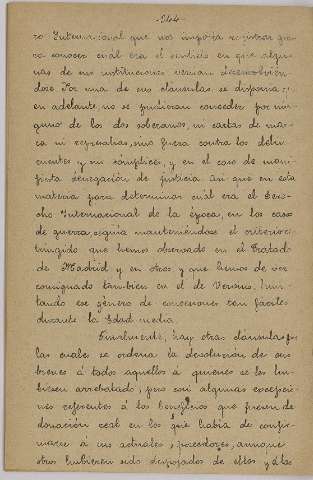 -244-
ro Internacional que nos importa registrar pa-
ra conocer cuál era el sentido en que algu-
nas de sus instituciones venían desenvolvién-
dose. Por una de sus cláusulas se disponía q:
en adelante no se pudieran conceder por nin-
guno de los dos soberanos, ni cartas de mar-
ca ni represalias, sino fuera contra los delin-
cuentes y sus cómplices, y en el caso de mani-
fiesta denegación de justicia. Así que en esta
materia para determinar cuál era el Dere-
cho Internacional de la época, en los casos
de guerra, seguía manteniéndose el criterio res-
tringido que hemos observado en el Tratado
de Madrid y en otros y que hemos de ver
consignado también en el de Vervins, limi-
tando ese género de concesiones tan fáciles
durante la Edad media.
Finalmente, hay otras cláusulas por
las cuales se ordena la devolución de sus
bienes á todos aquellos á quienes se les hu-
biesen arrebatado, pero con algunas excepcio-
nes referentes á los beneficios que fueran de
donación real en los que había de confir-
marse á sus actuales poseedores, aunque
otros hubiesen sido despojados de ellos y á los